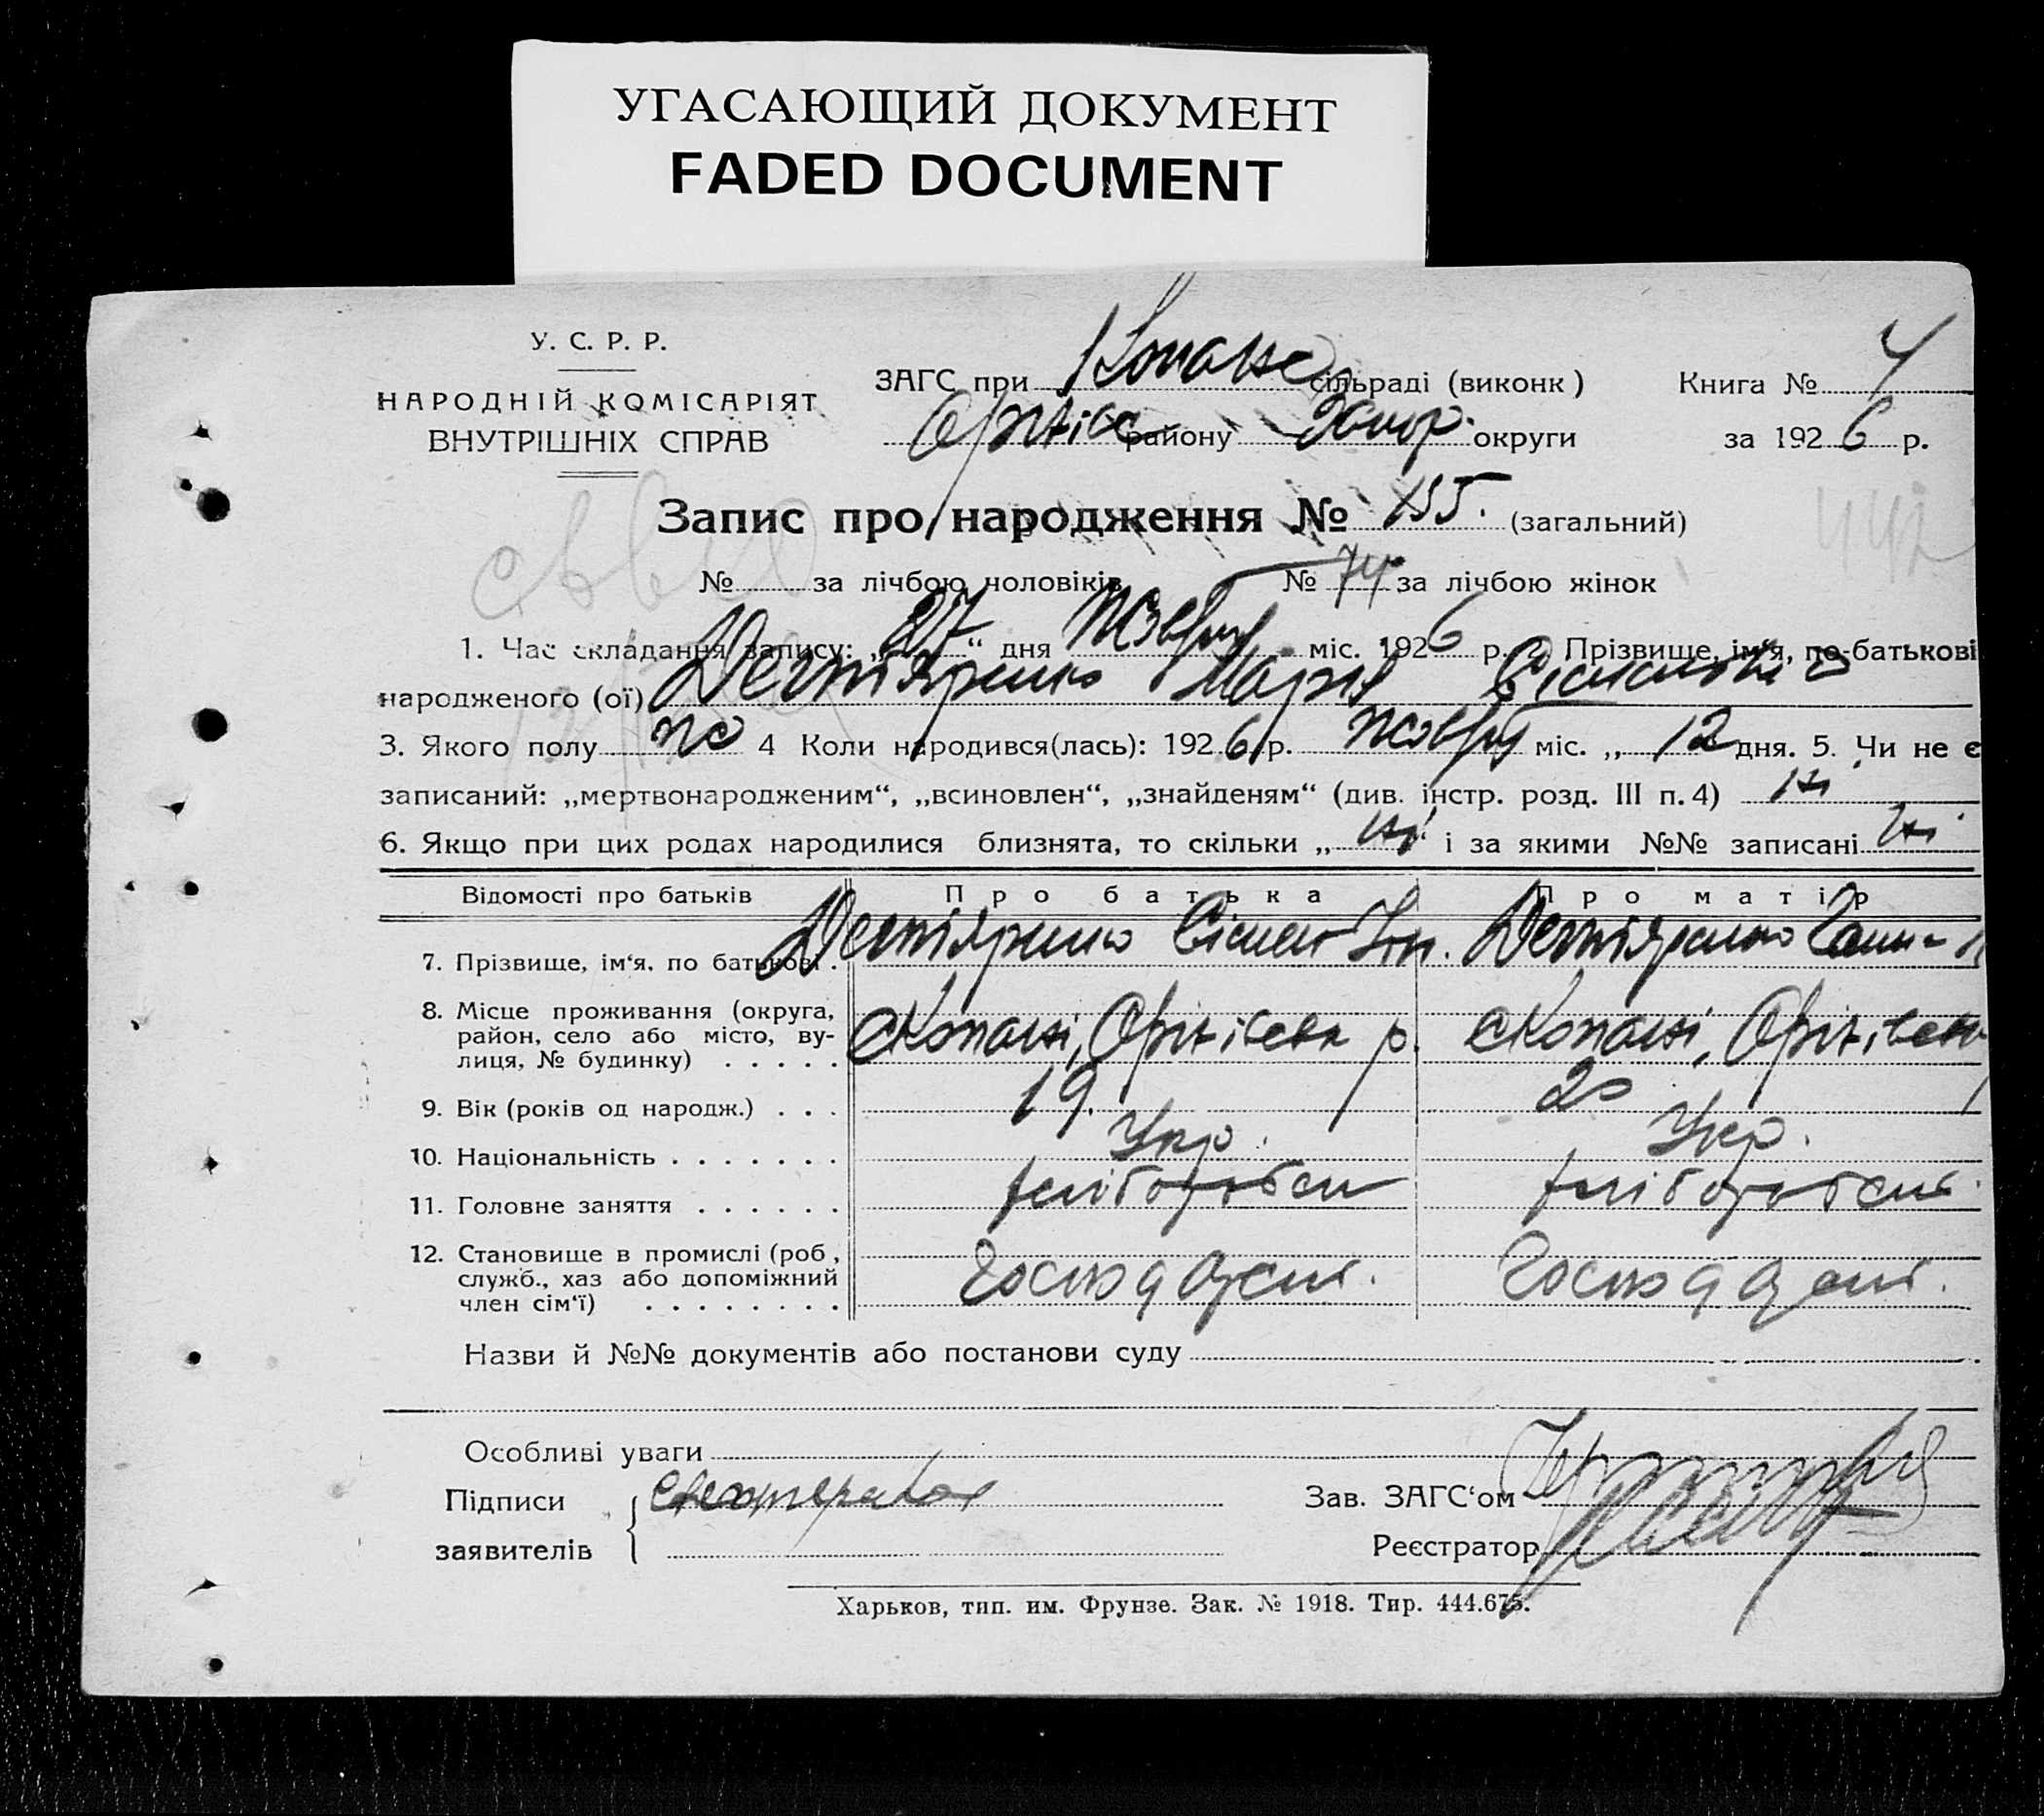 УГАСАЮЩИЙ ДОКУМЕНТ
FADED DOCUMENT
У. С. Р. Р.
НАРОДНІЙ КОМІСАРІЯТ
ВНУТРІШНІХ СПРАВ
ЗАГС при Копансь сільраді (виконк)
Оріхів району Запор. округи
Книга № 4
за 1926 р.
Запис про народження № 155. (загальний)
№ за лічбою чоловіків № 74 за лічбою жінок
1. Час складання запису: „27“ дня Жовтня міс. 1926 р. 2. Прізвище, ім'я, по-батькові
народженого (ої) Дегтяренко Марія
3. Якого полу ж 4 Коли народився(лась): 1926 р. Жовтн міс. „ 12 дня. 5. Чи не є
записаний: „мертвонародженим“, „всиновлен“, „знайденям“ (див. інстр. розд. III п. 4) ні
6. Якщо при цих родах народилися близнята, то скільки „ ні “ і за якими №№ записані ні
Відомості про батьків Про батька Про матір
7. Прізвище, ім'я, по батькові . Дегтяренко Сімен Дегтяренко Ганна
8. Місце проживання (округа,
район, село або місто, ву-
лиця, № будинку) . . . . . с Копані, Оріхівськ р. с Копані, Оріхівськ
9. Вік (років од народж.) . . . 19. 20
10. Національність . . . . . . . Укр. Укр.
11. Головне заняття . . . . . . хлібороб хлібороб
12. Становище в промислі (роб,
служб., хаз або допоміжний
член сім'ї) . . . . . . . .
Назви й №№ документів або постанови суду
Особливі уваги
Підписи
заявителів
Зав. ЗАГС'ом
Реєстратор
Харьков, тип. им. Фрунзе. Зак. № 1918. Тир. 444.675.